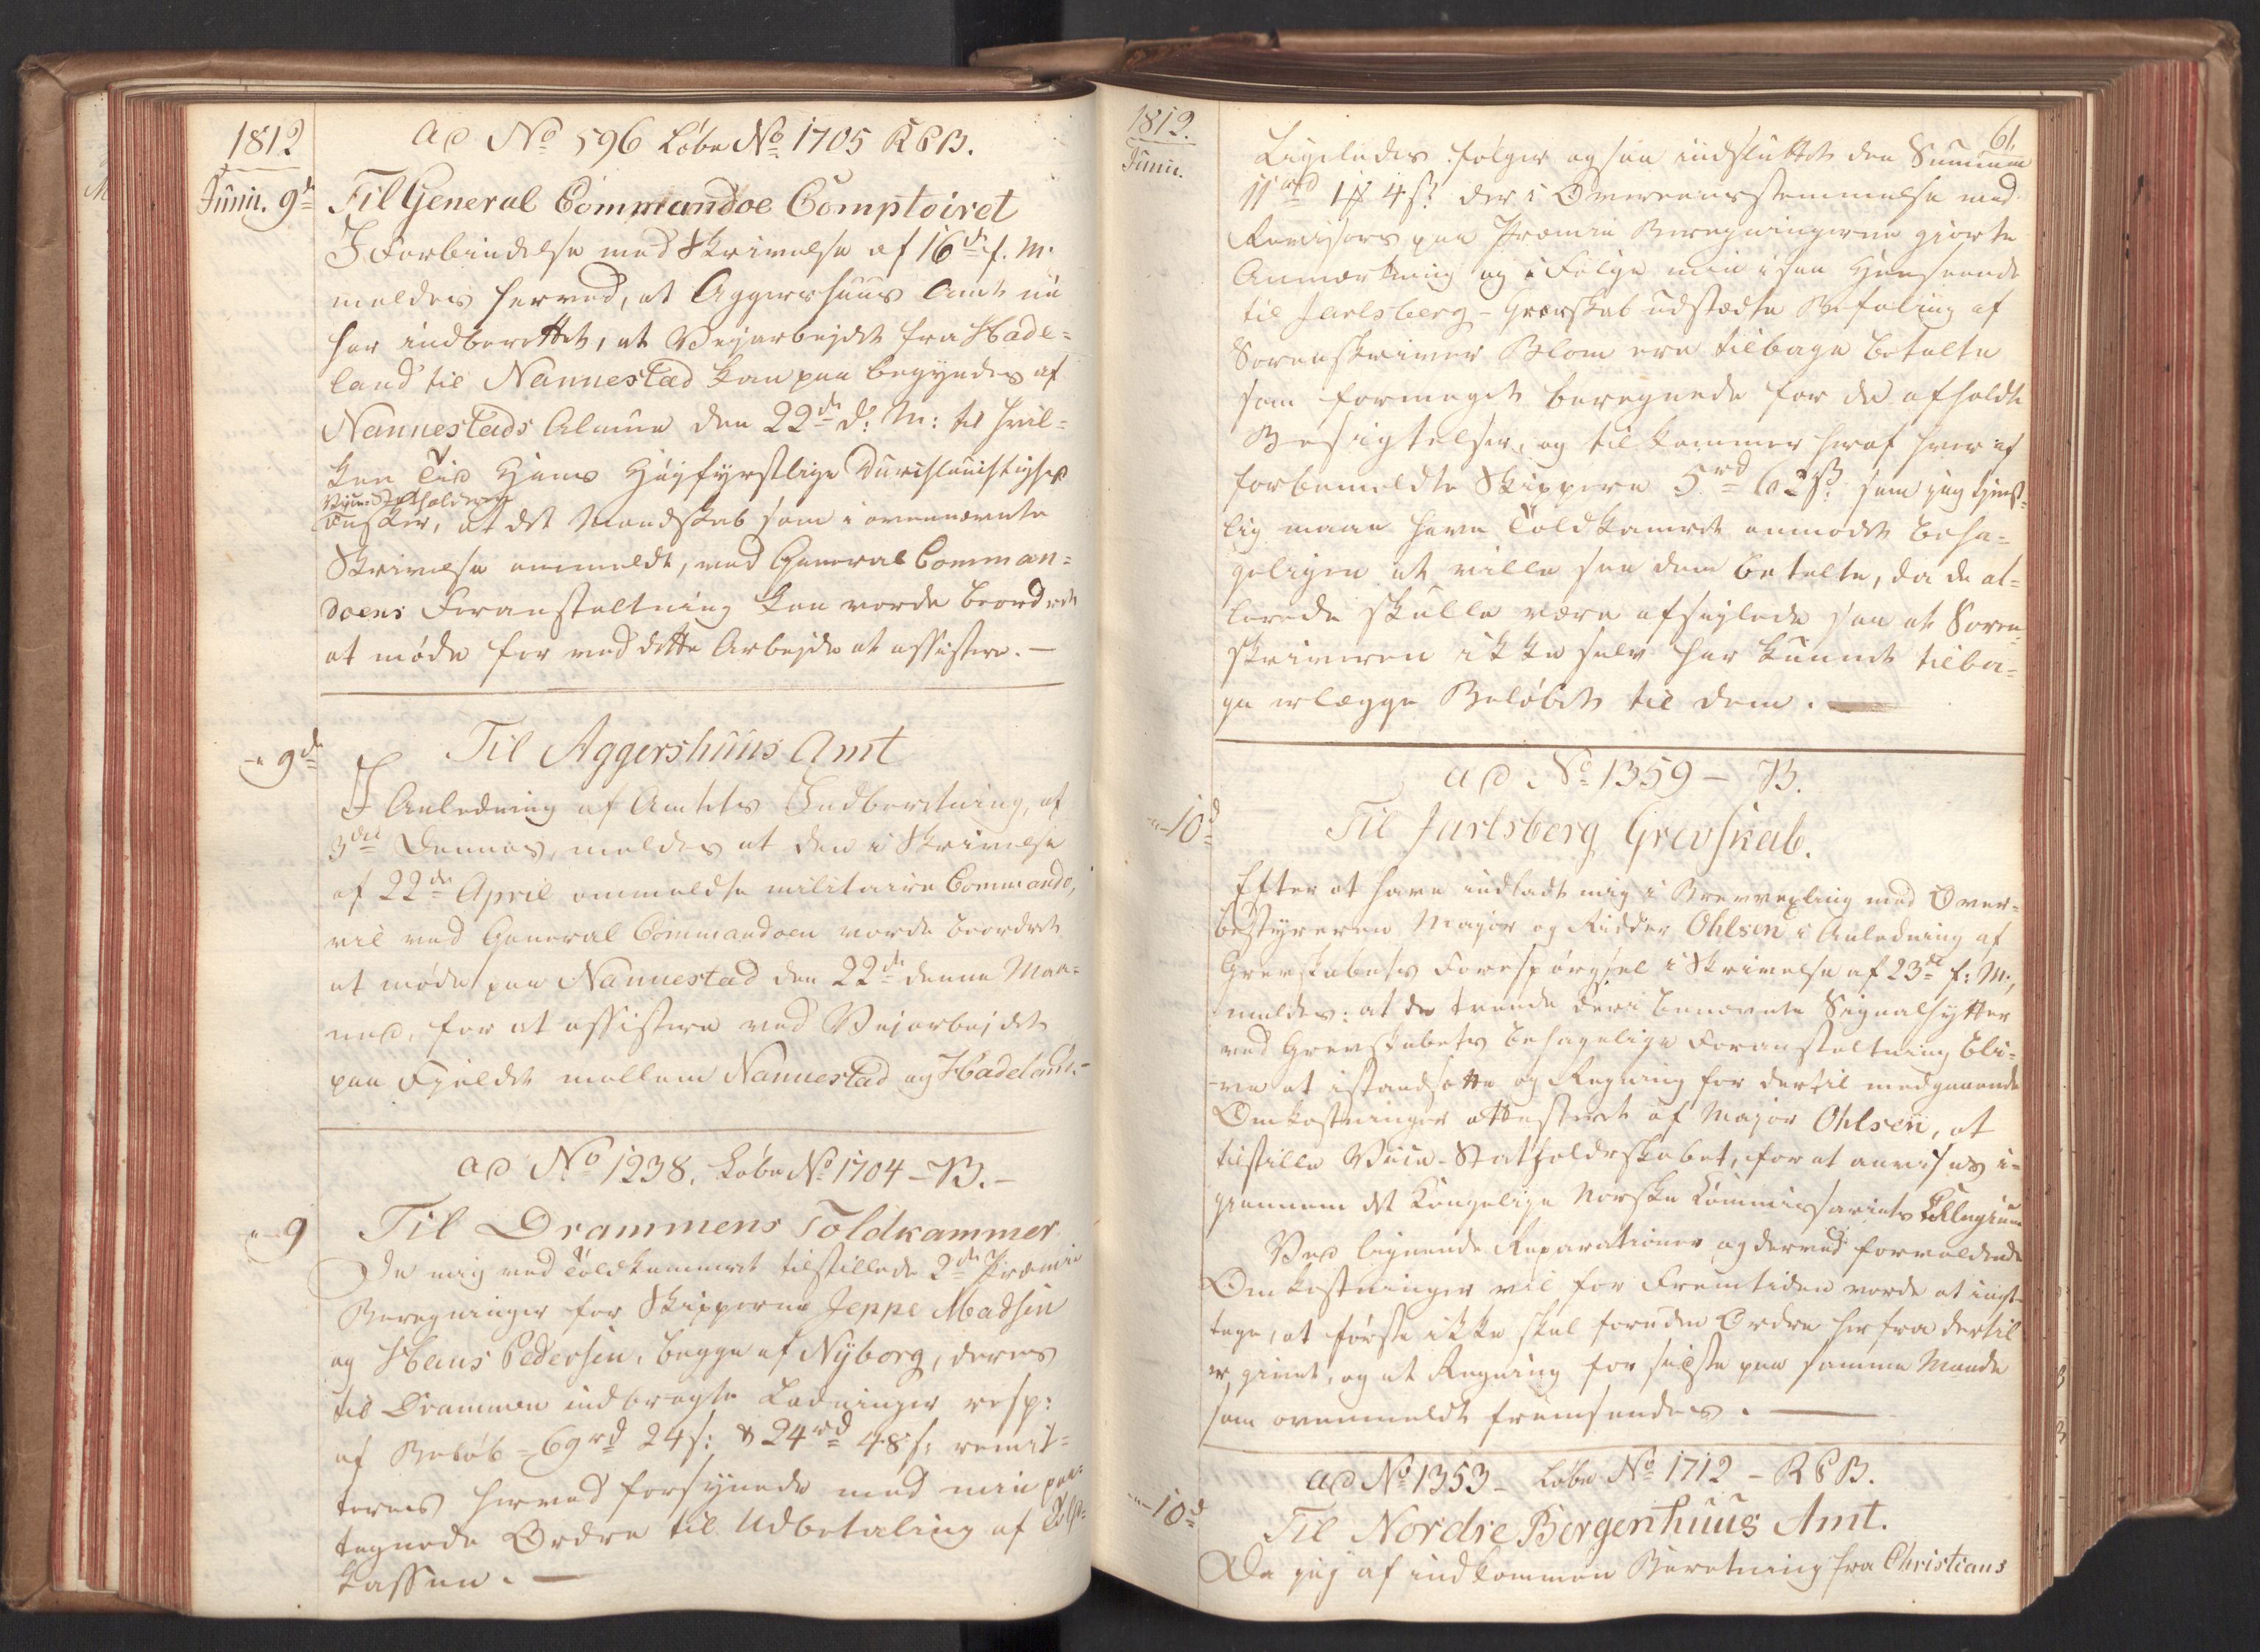 1812
ad No 596 Løbe No 1705 RPB.
Junii. 9de
Til General Commandoe Comptoiret
I Forbindelse med Skrivelse af 16de f. M.
meldes herved, at Aggershuus Amt nu
har indberettet, at Vejarbejdet fra Hade=
land til Nannestad kan paa begyndes af
Nannestads Almue den 22de d: M: til hvil=
ken Tid Hans Højfyrstlige Durchlauchtighed
Vice Statholderen
ønsker, at det Mandskab som i ovennævnte
Skrivelse ommeldt, ved General Comman=
doens Foranstaltning kan vorde beordret
at møde for ved dette Arbejde at assistere. —
- 9de
Til Aggershuus Amt
I Anledning af Amtets Indberetning, af
3die Dennes, meldes at den i Skrivelse
af 22de April ommeldte militaire Commando,
vil ved General Commandoen vorde beordret
at møde paa Nannestad den 22de denne Maa=
ned, for at assistere ved Vejarbejdet
paa Fjeldet mellem Nannestad og Hadeland.-
ad No 1238. Løbe No 1704 - B. -
- 9
Til Drammens Toldkammer
De mig ved Toldkammeret tilstillede 2de Præmie
Beregninger for Skipperne Jeppe Madsen
og Hans Pedersen, begge af Nyborg, deres
til Drammen indbragte Ladninger resp:
af Beløb = 69rd 24s: & 24rd 48s: remit=
teres herved forsynede med min paa=
tegnede Ordre til Udbetaling af Told=
kassen. —
1812.
Junii.
61.
Ligeledes følger ogsaa indsluttet den Summa
11rd 1# 4s: der i Overeensstemmelse med
Revisors paa Præmie Beregningerne giorte
Anmærkning og i Følge min i saa Henseende
til Jarlsberg - Grevskab udstædte Befaling af
Sorenskriver Blom ere tilbage betalte
som formeget beregnede for de afholdte
Besigtelser, og tilkommer heraf hver af
forbemeldte Skippere 5rd 62s: som jeg tjenst=
lig maae have Toldkamret anmodet beha=
geligen at ville see dem betalte, da de al=
lerede skulle være afsejlede saa at Soren
skriveren ikke selv har kunnet tilba=
ge erlægge Beløbet til dem. —
ad No 1359 - B.
- 10d
Til Jarlsberg Grevskab.
Efter at have indladt mig i Brevvexling med Over=
bestyreren Major og Ridder Ohlsen i Anledning af
Grevskabets Forespørgsel i Skrivelse af 23de f: M:,
meldes: at de trende deri benævnte Signalhytter
ved Grevskabets behagelige Foranstaltning bli=
ve at istandsætte og Regning for dertil medgaaende
Omkostninger attesteret af Major Ohlsen, at
tilstille Vice-Statholderskabet, for at anvises i=
giennem det Kongelige Norske Commissariats Collegium
Ved lignende Reparationer og derved forvoldende
Omkostninger vil for Fremtiden vorde at iagt=
tage, at første ikke skal foruden Ordre herfra dertil
er givet, og at Regning for sidste paa samme Maade
som ovenmeldt fremsendes. —
ad No 1353 - Løbe No 1712 - RPB.
- 10d
Til Nordre Bergenhuus Amt.
Da jeg af indkommen Beretning fra Christians